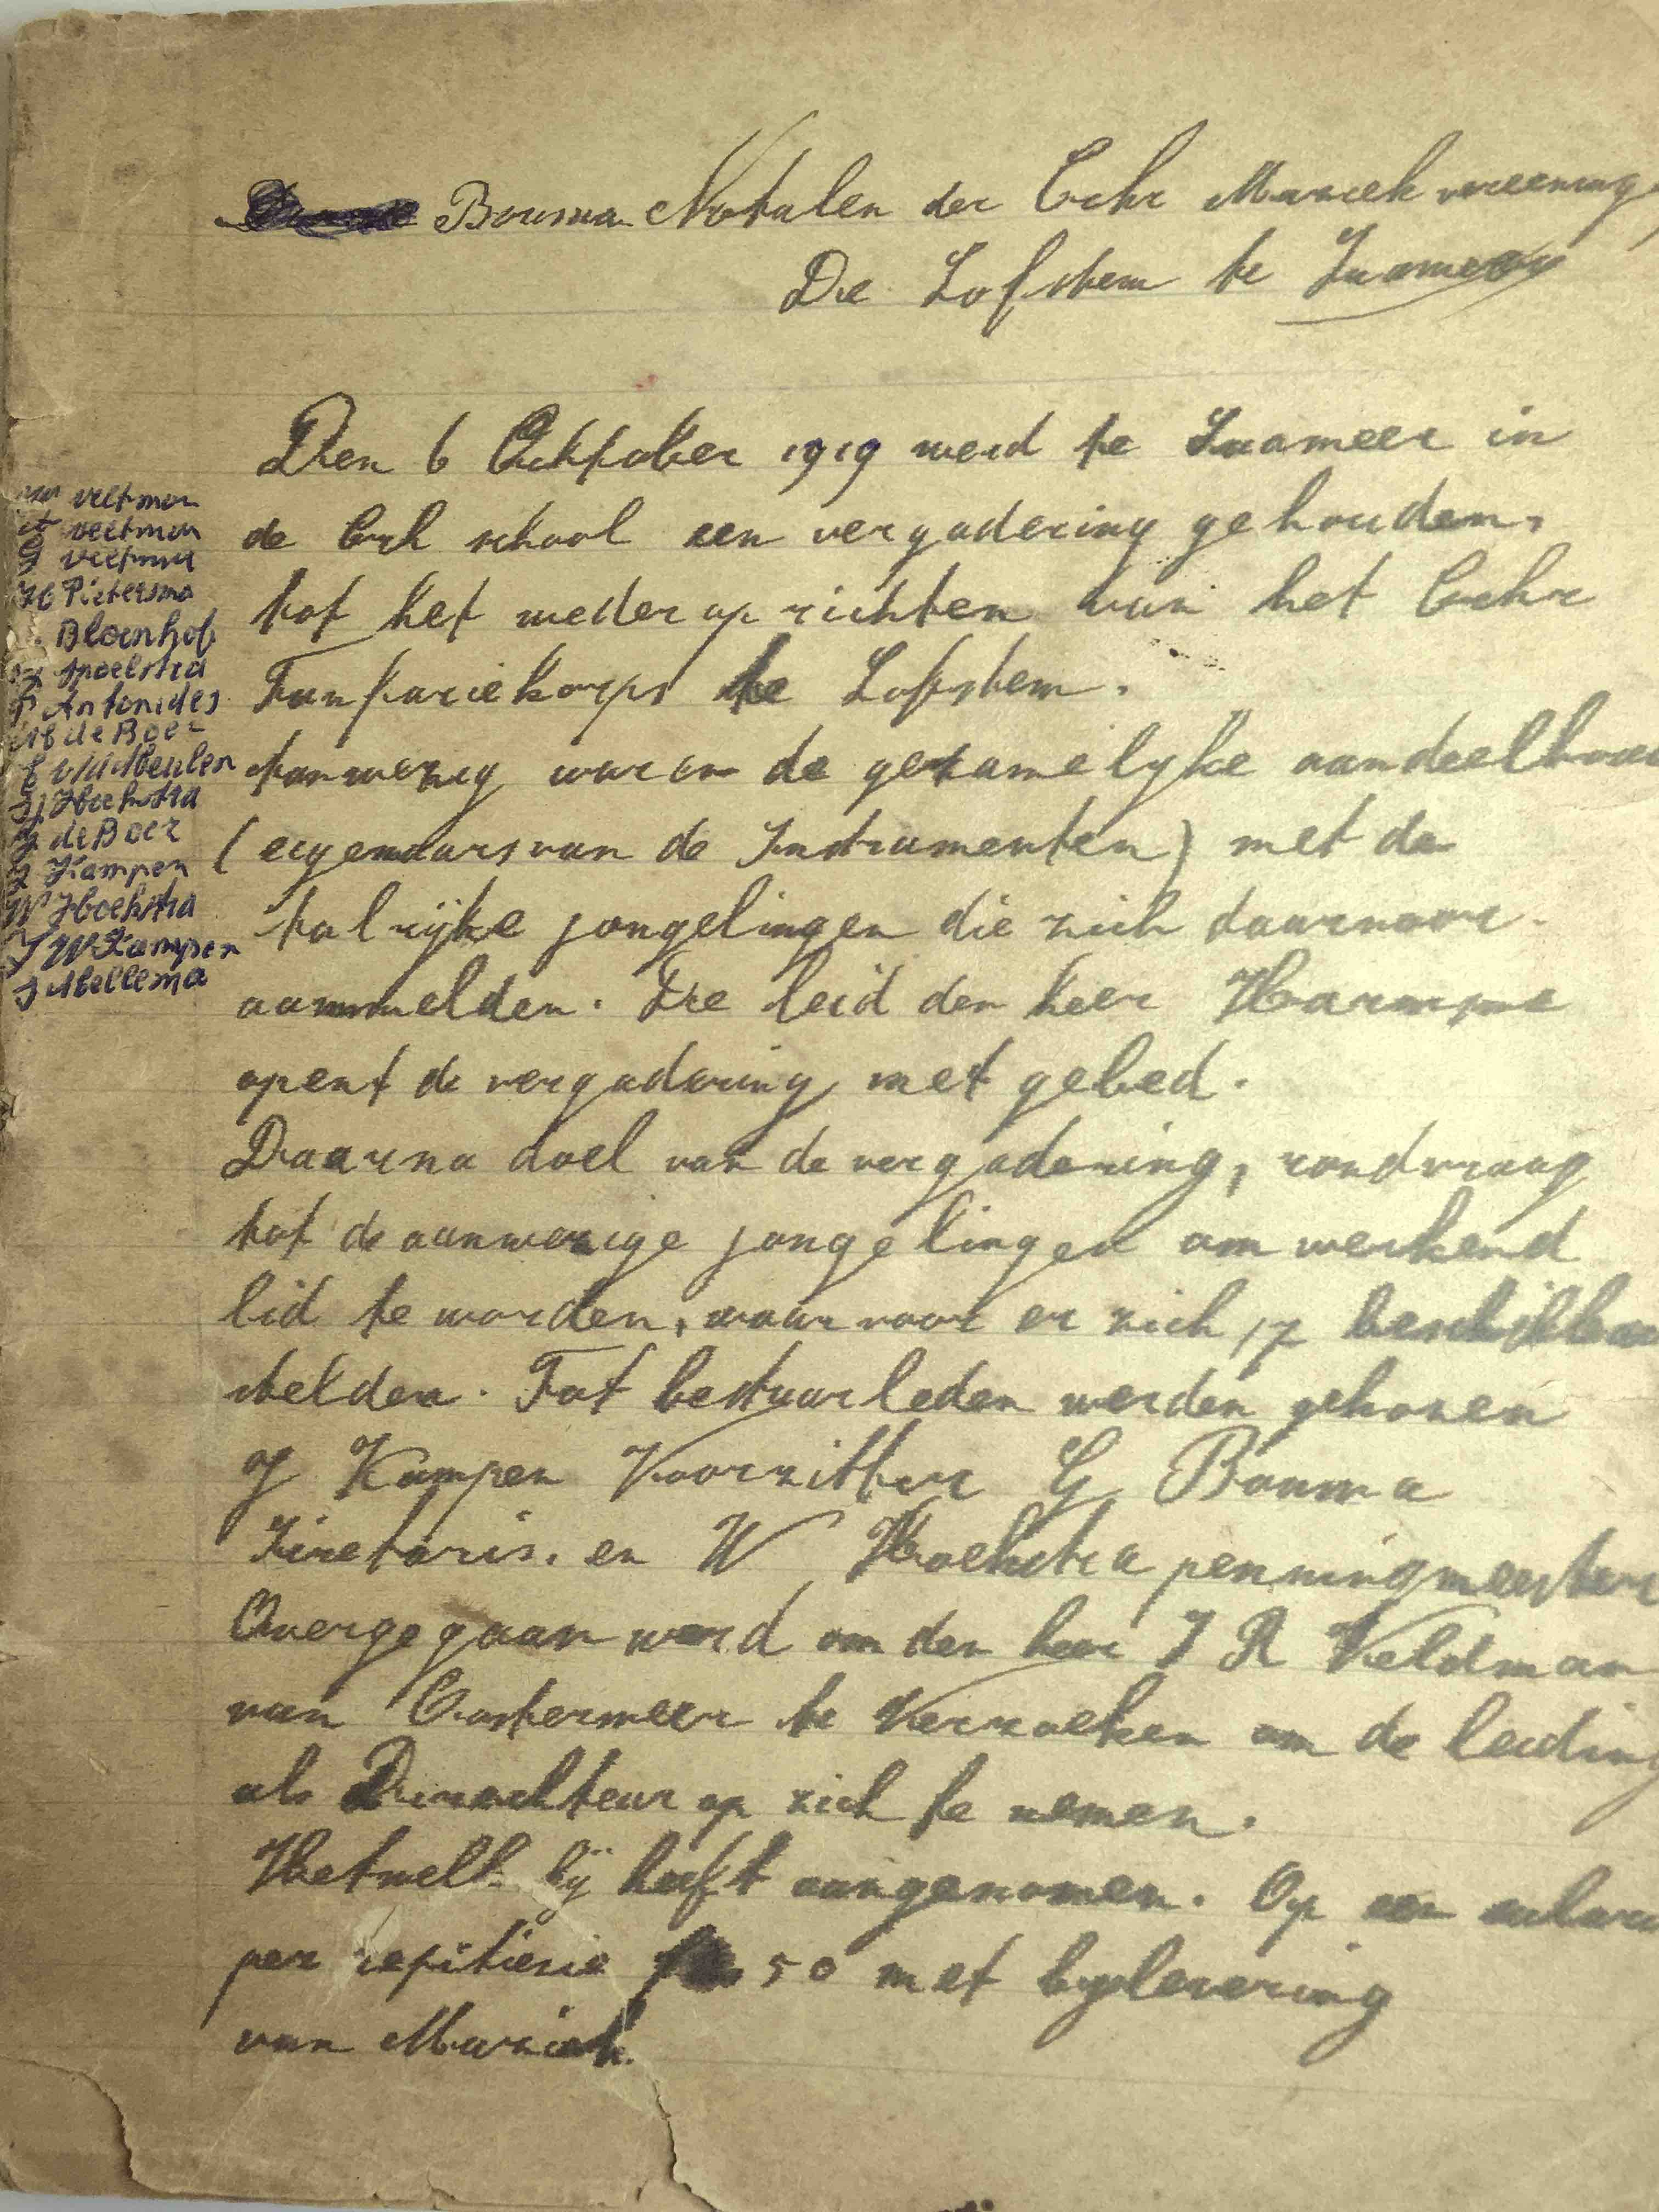 Bouma Notulen der Crhr Muziek vereening
De Lofstem te Suameer
Den 6 Ocktober 1919 werd te Suameer in
de Crh school een vergadering gehouden,
tot het weder op richten van het Crhr
Fanfariekorps de Lofstem.
Aanwezig waren de gezamelyke aandeelhou
(eigenaars van de Instrumenten) met de
talrijke jongelingen die zich daarvoor
aanmelden. Die leid den heer Harmsma
opent de vergadering met gebed.
Daarna doel van de vergadering, rondvraag
tot de aanwezige jongelingen om werkend
lid te worden, waarvoor er zich 17 beschikbaar
stelden. Tot bestuurleden werden gekozen
J Kampen Voorzitter G Bouma
Sicretaris. en W Hoekstra penningmeester
Overgegaan werd om den heer J R Veldman
van Oostermeer te Verzoeken om de leiding
als Dirackteur op zich te nemen.
Hetwelk hij heeft aangenomen. Op een salaris
per repitiesie 50 met bylevering
van Muziek.
veltman
veltman
veltman
H Pietersma
Bloemhof
Spoelstra
Antonides
de Boer
v/d Meulen
Hoekstra
de Boer
Kampen
W Hoekstra
J W Kampen
J Mellema